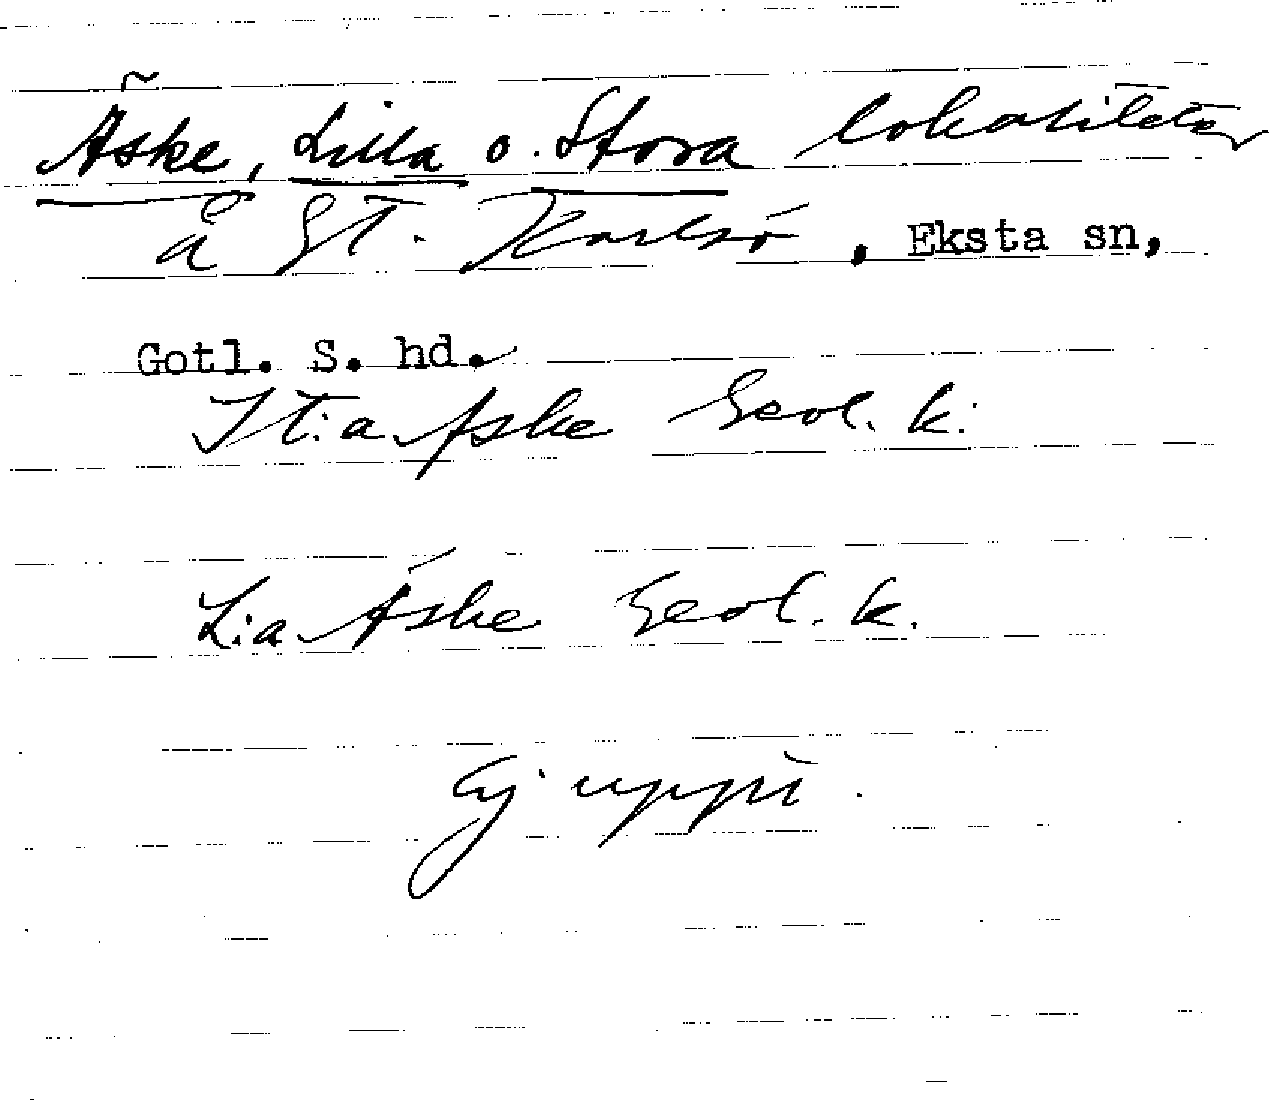 Äske, Lilla o. Stora lokaliteter
å St. Karlsö, Eksta sn,
Gotl. S. hd.
St:a Äske Geol. k.
L:a Äske Geol. k.
Ej uppt.